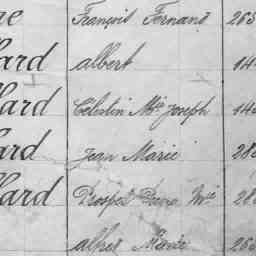 re François Fernand 265
lard albert 14
lard Célestin Mie Joseph 14
ard Jean Marie 28
lard Prosper Marie 28
alfred Marie 265